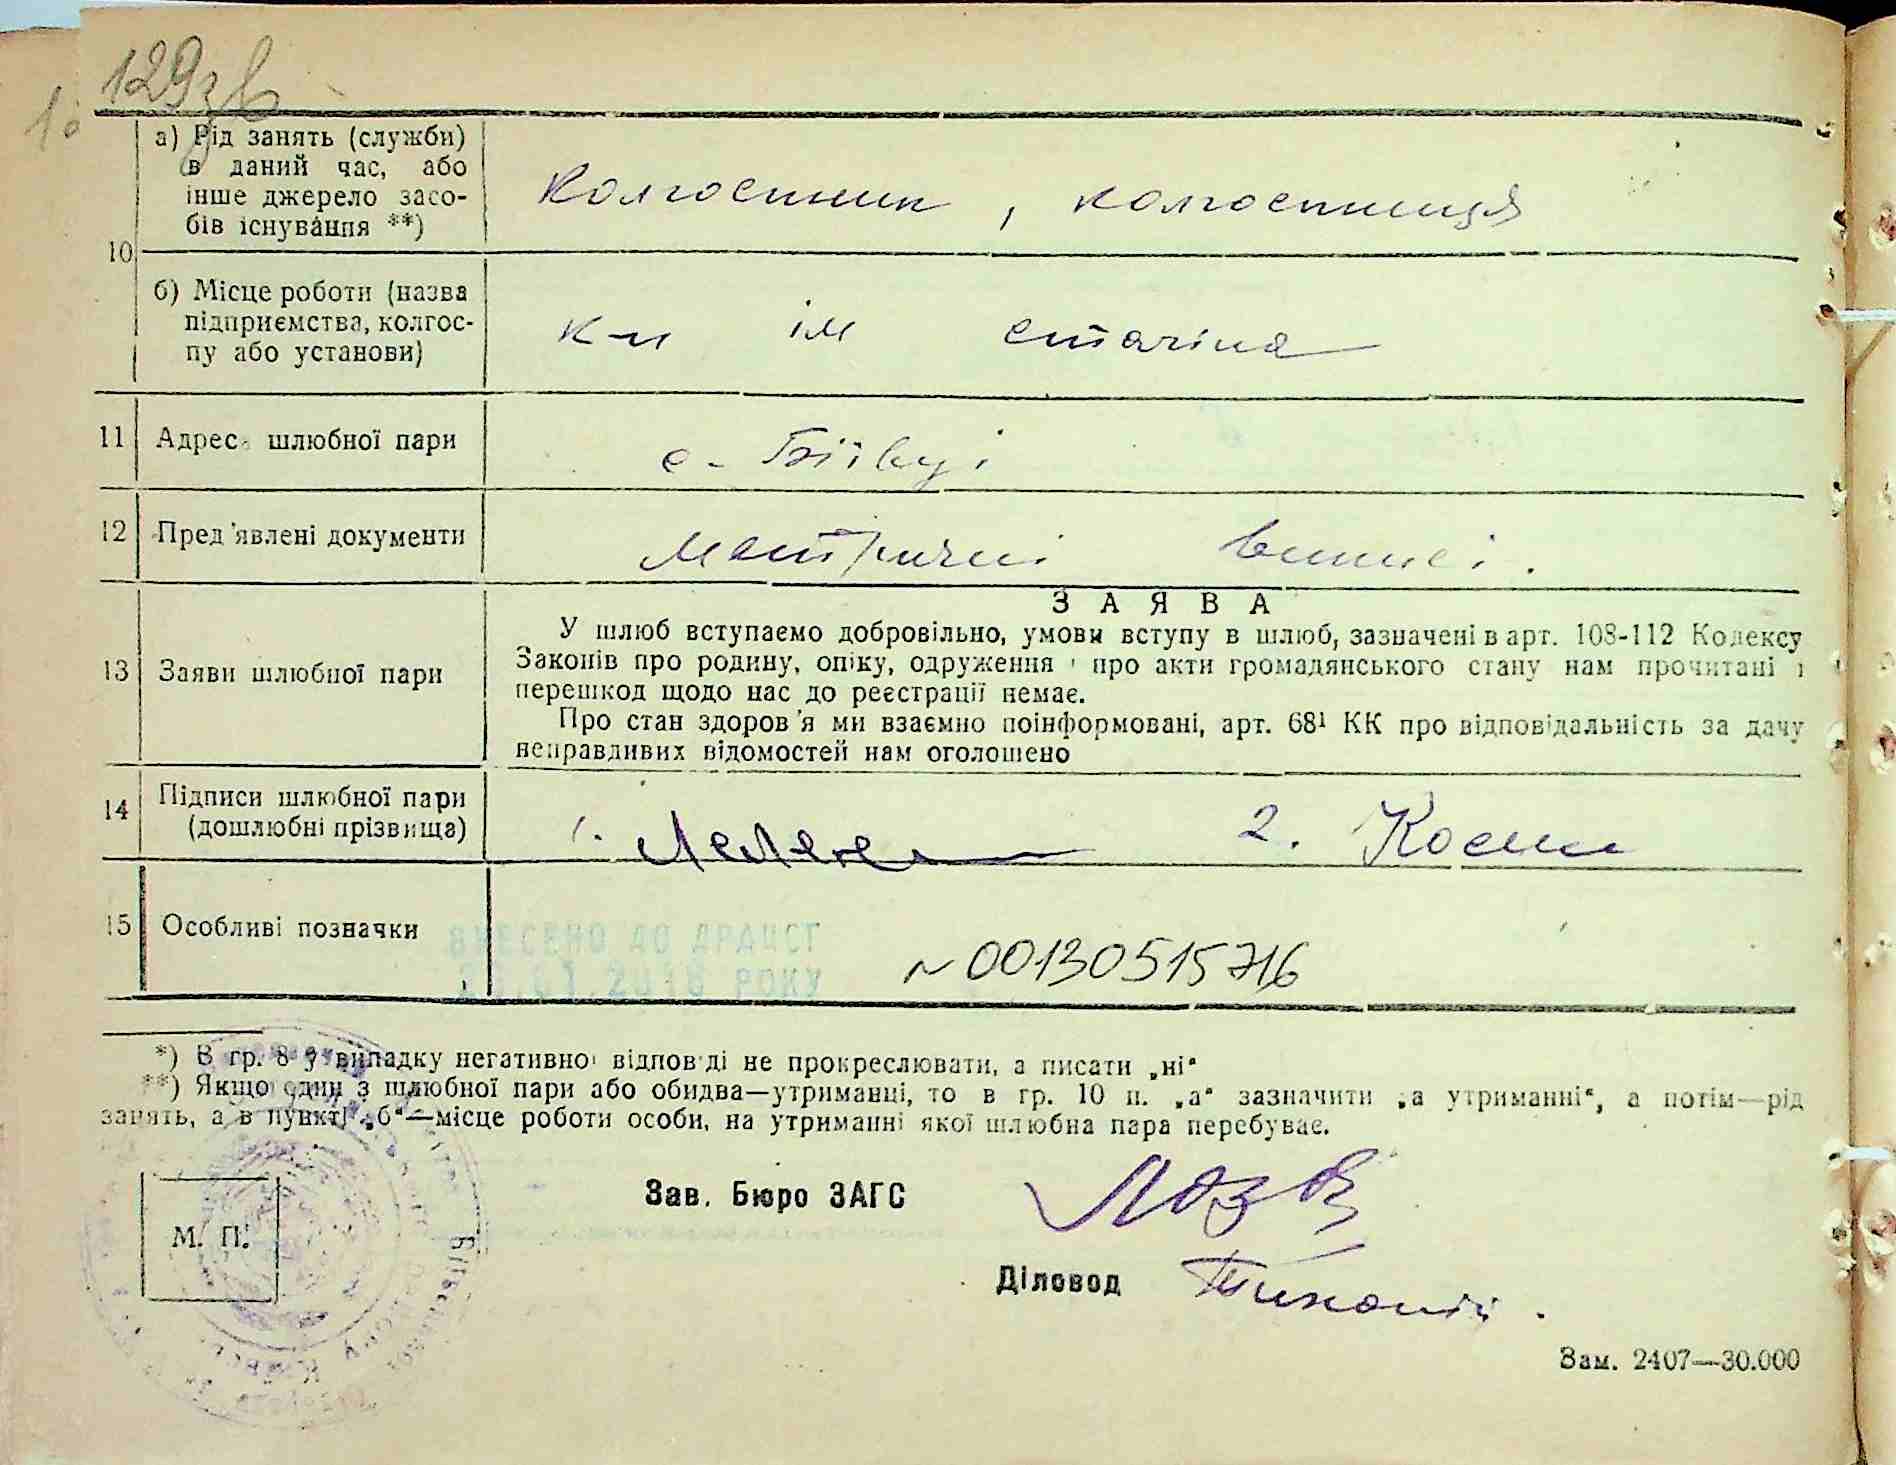 129зв
10
а) Рід занять (служби)
в даний час, або
інше джерело засо-
бів існування **)
Колгоспник, колгоспниця
б) Місце роботи (назва
підприємства, колгос-
пу або установи)
к-п ім сталіна
11 Адреса шлюбної пари
с.
12 Пред'явлені документи
Метричні виписі.
13 Заяви шлюбної пари
ЗАЯВА
У шлюб вступаємо добровільно, умови вступу в шлюб, зазначені в арт. 108-112 Кодексу
Законів про родину, опіку, одруження і про акти громадянського стану нам прочитані і
перешкод щодо нас до реєстрації немає.
Про стан здоров'я ми взаємно поінформовані, арт. 68¹ КК про відповідальність за дачу
неправдивих відомостей нам оголошено
14 Підписи шлюбної пари
(дошлюбні прізвища)
1. 2.
15 Особливі позначки
ВНЕСЕНО ДО ДРАЦСГ
.01.2018 РОКУ
N 00130515716
*) В гр. 8 у випадку негативної відповіді не прокреслювати, а писати „ні“
**) Якщо один з шлюбної пари або обидва—утриманці, то в гр. 10 п. „а“ зазначити „а утриманні“, а потім—рід
занять, а в пункті „б“—місце роботи особи, на утриманні якої шлюбна пара перебуває.
М. П.
Зав. Бюро ЗАГС
Діловод
Зам. 2407—30.000